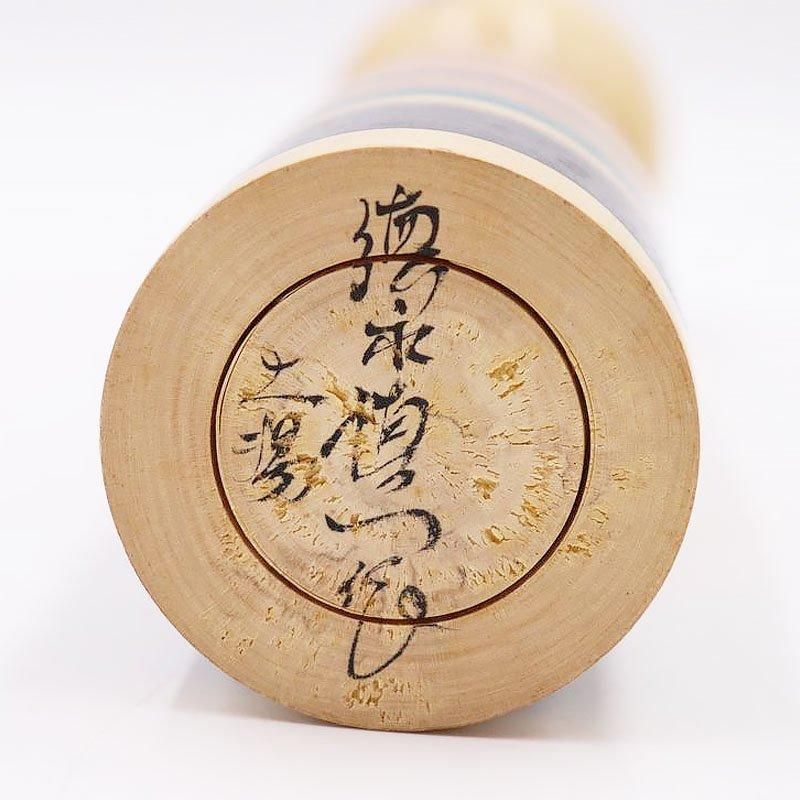 徳永慎一作
土湯